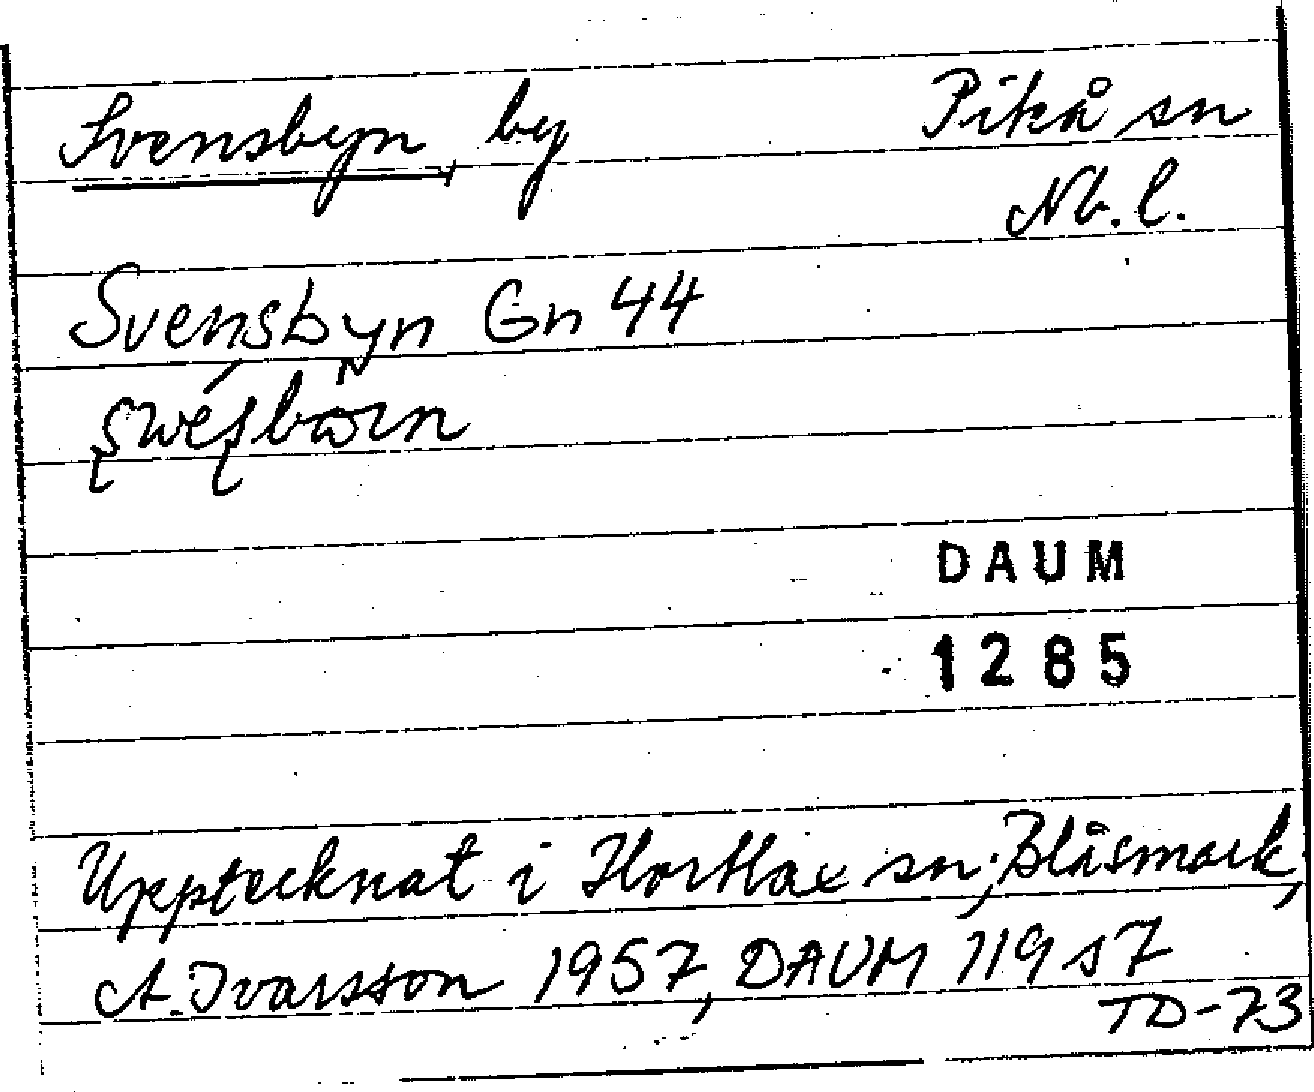 Svensbyn, by Piteå sn
Nb. l.
Svensbyn Gn 44
DAUM
1285
Upptecknat i Hortlax sn, Blåsmark,
A. Ivarsson 1957, DAUM 119 s 7
TD-73